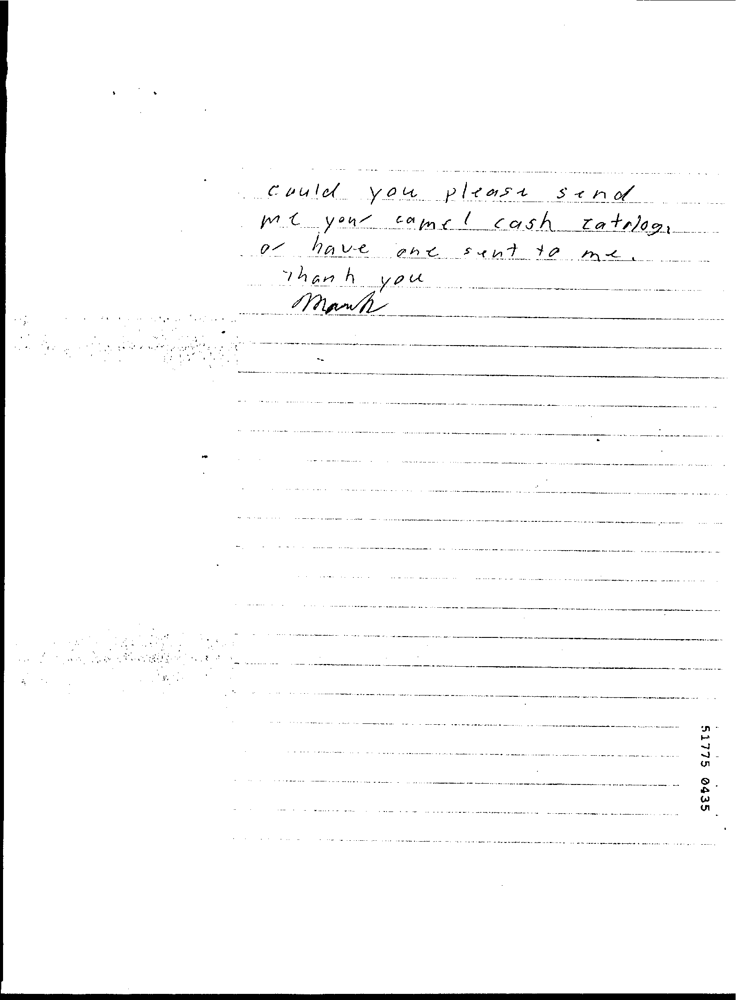 could you please send
me your camel cash catologe
or have one sent to me.
Thank you
51775 0435